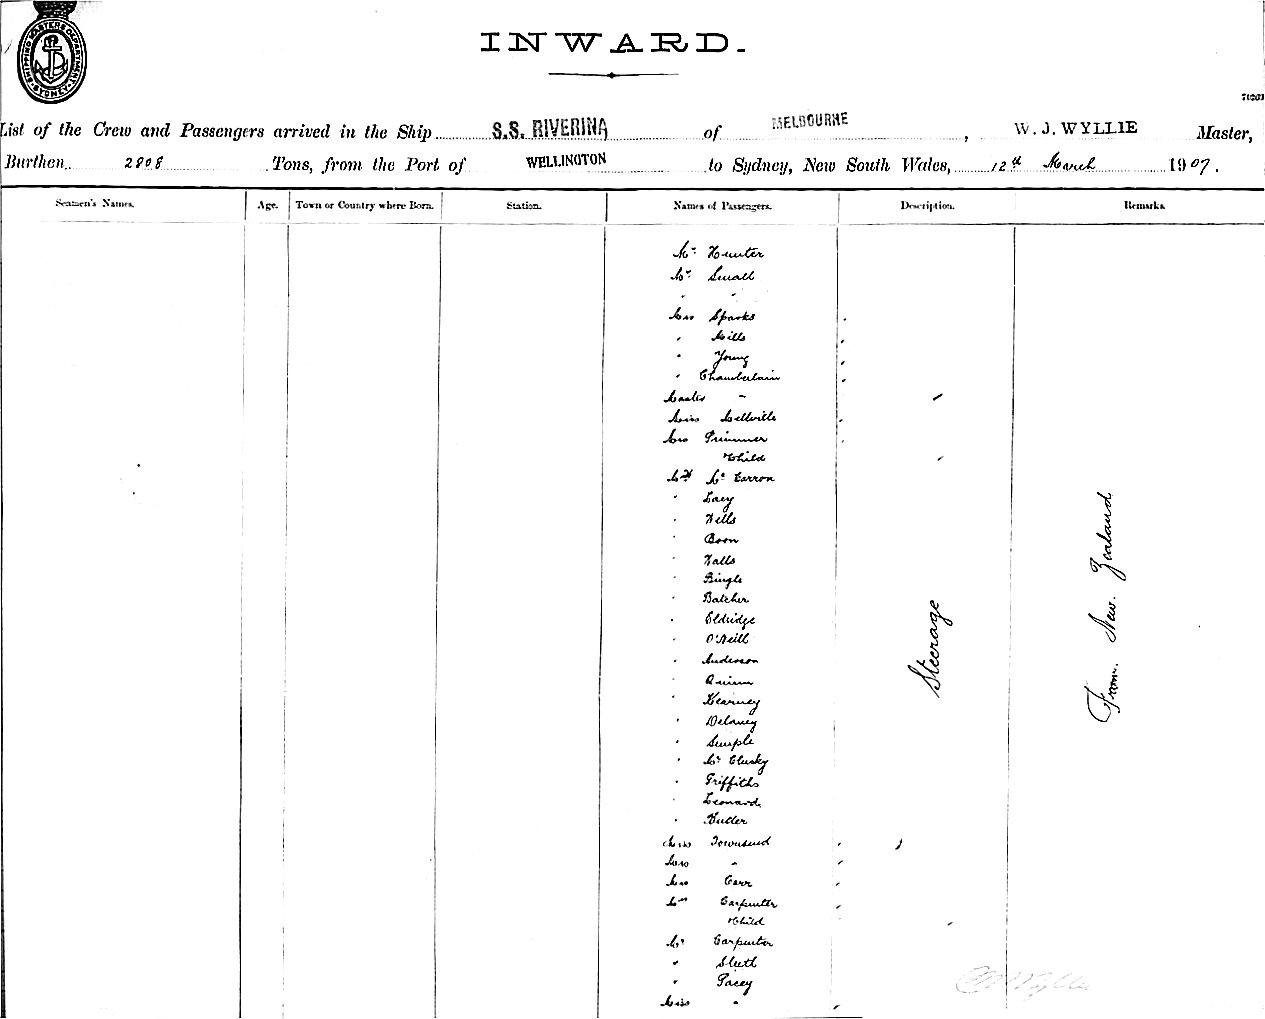 SHIPPING MASTERS DEPARTMENT SYDNEY
INWARD.
List of the Crew and Passengers arrived in the Ship S.S. RIVERINA of MELBOURNE, W. J. WYLLIE Master,
Burthen 2808 Tons, from the Port of WELLINGTON to Sydney, New South Wales, 12th March 1907.
Seamen's Names. Age. Town or Country where Born. Station. Names of Passengers. Description. Remarks.
Mr Hunter
Mr Small
" "
Mrs Sparks
" Mills
" Young
" Chamberlain
Master "
Miss Mellville
Mrs Primmer
Child
Mr Mc Carron
" Lacy
" Wells
" Boon
" Walls
" Bingle
" Batcher
" Eldridge
" O'Neill
" Anderson
" Quinn
" Kearney
" Delaney
" Semple
" Mc Clusky
" Griffiths
" Leonard
" Butler
Miss Townsend
Mrs "
Mrs Carr
Mrs Carpenter
Child
Mr Carpenter
" Sleeth
" Pacey
Miss "
Steerage
From New Zealand